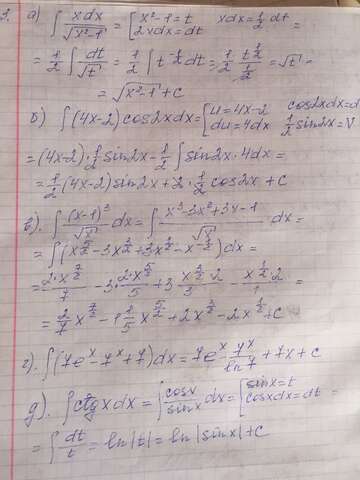 1. а) ∫ xdx/√(x²-1) = [x²-1=t xdx=½dt
2xdx=dt =
= ½ ∫ dt/√t = ½ ∫ t^(-½) dt = ½ t^(½)/½ = √t =
= √(x²-1) + c
б) ∫(4x-2)cos2xdx = [u=4x-2 cos2xdx=d
du=4dx ½sin2x=V
= (4x-2)·½ sin2x - ½ ∫ sin2x·4dx =
= ½(4x-2)sin2x + 2·½ cos2x + C
в) ∫ (x-1)³/√x dx = ∫ (x³-3x²+3x-1)/√x dx =
= ∫(x^(5/2) - 3x^(3/2) + 3x^(1/2) - x^(-1/2))dx =
= 2·x^(7/2)/7 - 3·2·x^(5/2)/5 + 3·x^(3/2)·2/3 - x^(1/2)·2/1 =
= 2/7 x^(7/2) - 1 1/5 x^(5/2) + 2x^(3/2) - 2x^(1/2) + C
г). ∫(7e^x - 7^x + 7)dx = 7e^x 7^x/ln7 + 7x + C
д). ∫ctgxdx = ∫ cosx/sinx dx = [sinx=t
cosxdx=dt =
= ∫ dt/t = ln|t| = ln|sinx| + C